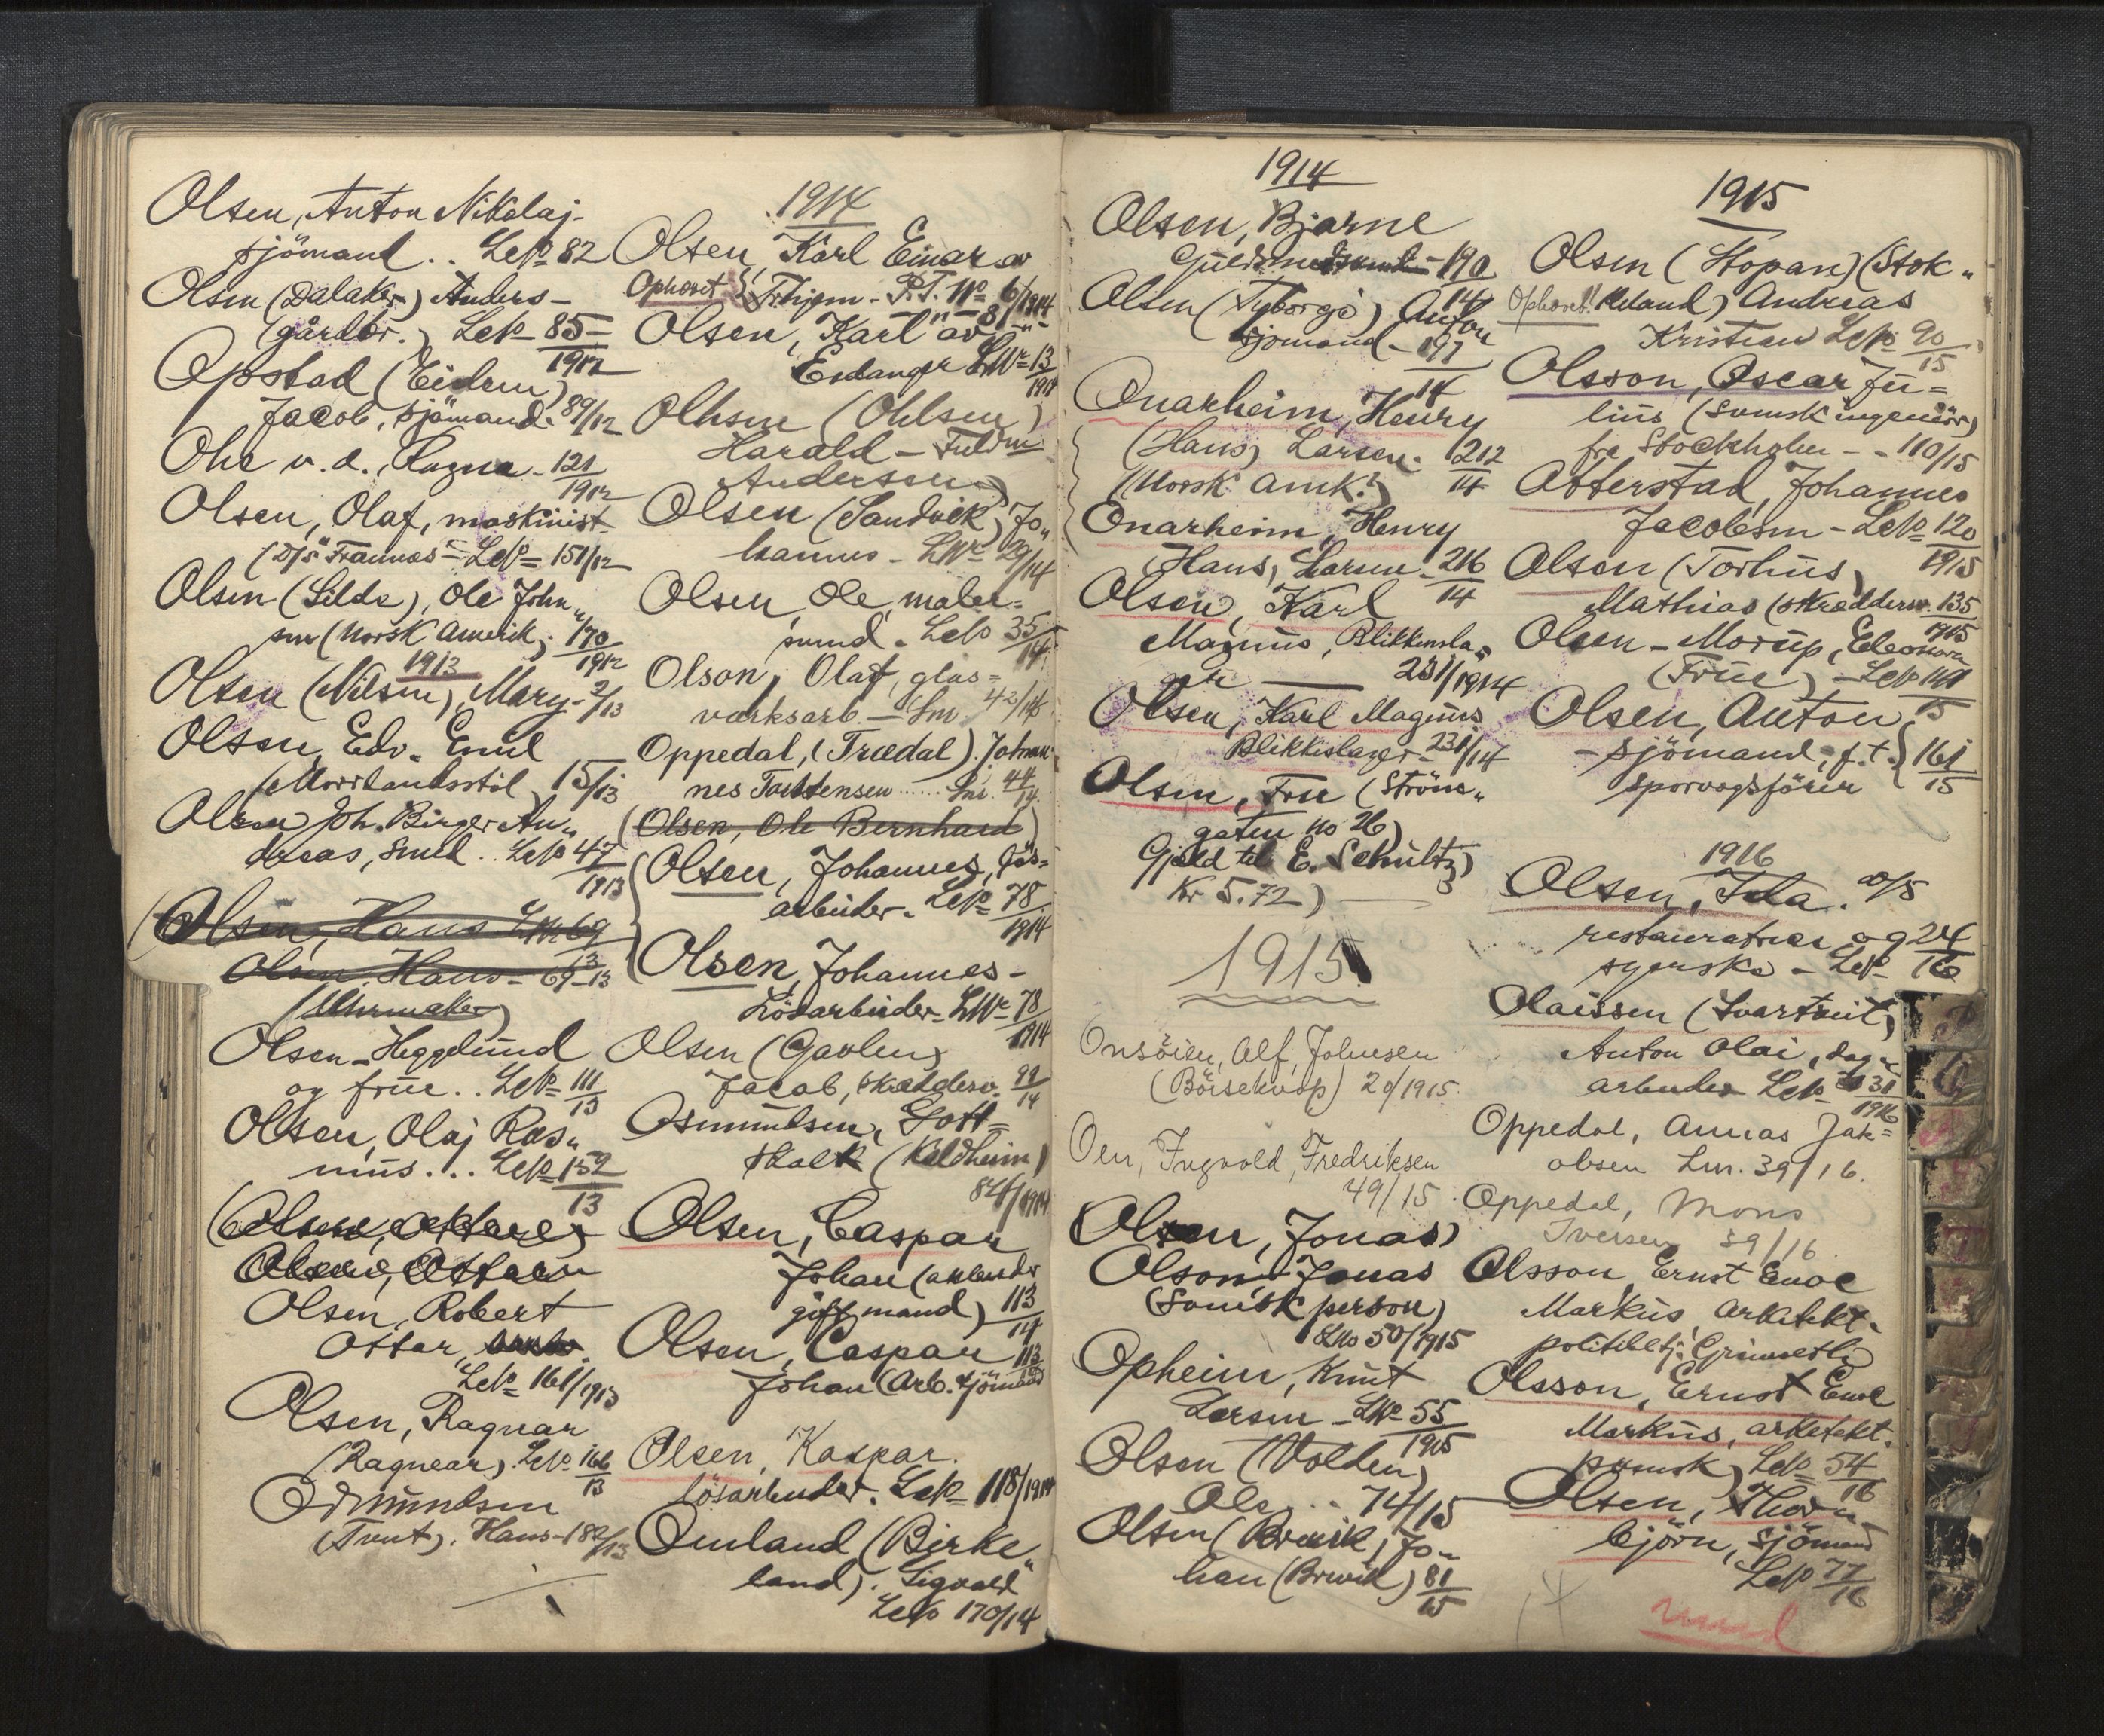 Olsen, Anton Nikolaj-
sjömand .. LNo 82
Olsen (Dalaker) Anders -
(gårdbr.) LNo - 85 -
1912
Opstad (Eidem)
Jacob, sjömand. 89/12
Ohe u. d., Ragna - 121
1912
Olsen, Olaf, maskinist
(D/S "Framnæs" - LNo = 151/12
Olsen (Silda), Ole John„
sen (Norsk Amerik. 170
1912
1913
Olsen (Nilsen), Mary - 2/13
Olsen, Edv. Emil
15/13
Olsen Joh. Birger An„
dreas, smed .. LNo 47
1913
Olsen, Hans LNo 69
13
Olsen, Hans - 69-13
(Uhrmaker)
Olsen-Heggelund
og frue .. LNo 111
13
Olsen, Olaj Ras„
mus ... LNo 152
13
(Olsen, Ottar)
Olsen, Ottar
Olsen, Robert
Ottar,
LNo = 161/1913
Olsen, Ragnar
(Ragnear). LNo 166
13
Odmundsen
(Tveit). Hans - 182/13
1914
Olsen, Karl Einar av
Ophævet Trhjem - P.T. No 6/1914
Olsen, Karl av
Eidanger LNo = 13
1914
Olhsen (Ohlsen)
Harald - Fuldm
Anderssen)
Olsen (Sandvik), Jo„
hannes - LNo 29/14
Olsen, Ole, maler=
svend. LNo 35
14
Olson, Olaf, glas=
værksarb. - Lnr 42/14
Oppedal, (Trædal). Johan
nes Torstensen ...... Lnr. 44
14.
(Olsen, Ole Bernhard)
Olsen, Johannes, løs=
arbeider. LNo = 78
1914
Olsen, Johannes -
Lösarbeider - LNo 78
1914
Olsen (Gavlen)
Jacob, skrædderso. 99
14
Osmundsen, Gott=
skalk (Kaldheim)
82/1914
Olsen, Caspar
Johan (arbeider
gift mand) 113
14
Olsen, Caspar 113
Johan (Arb. sjömand
Olsen, Kaspar.
lösarbeider. LNo = 118/1914
Omland (Birke„
land). Sigvald
LNo 170/14
1914
Olsen, Bjarne
190
14
Olsen (Tyborgö) Anton
sjömand - 197
14
Onarheim, Henry
(Hans) Larsen. 212
(Norsk Amk.) 14
Onarheim, Henry
(Hans) Larsen - 216
14
Olsen, Karl
Magnus, Blikkensla„
ger 231/1914
Olsen, Karl Magnus
Blikkislager - 231/14
Olsen, Frue (Ströms„
gaten no 26)
Gjæld til E. Schultz)
Kr 5.72) -
1915
Onsöien, Alf, Johnsen
(Börseknop) 20/1915.
Oen, Ingvald, Fredriksen
49/15.
Olsen, Jonas)
Olson Jonas
(Svensk person)
LNo 50/1915
Opheim, Knut
Larsen - LNo 55
1915
Olsen (Volden)
Ole .. 74/15
Olsen (Brevik, Jo„
han (Brevik) 81
15
1915
Olsen (Stopan) (Stok„
Ophævet! keland) Andreas
Kristian LNo 90
15
Olsson, Oscar Ju=
lius (Svensk ingeniør)
fra Stockholm - - 110/15
Otterstad, Johannes
Jacobsen - LNo 120
1915
Olsen (Torhus)
Mathias (skræddersv. 135
1915
Olsen-Morup, Eleonora
(Frue) - LNo 149
15
Olsen, Anton
- sjömand, f.t. 161
sporvogsförer 15
1916
Olsen, Ida.
restauratrice og 24
syerske - LNo 16
Olaissen (Svartveit)
Anton Olai, dag„
arbeider LNo 31
1916
Oppedal, Annas Jak=
obsen Lnr. 39/16.
Oppedal, Mons
Iversen 39/16.
Olsson, Ernst Enoc
Markus, arkitekt.
politibetj. Grimsetli
Olsson, Ernst Enoc
Markus, arkitekt.
svensk) LNo = 54
16
Olsen, Thor„
björn, sjömand
LNo 77
16